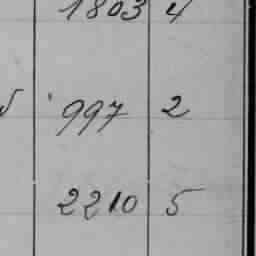 1803 4
997 2
2210 5